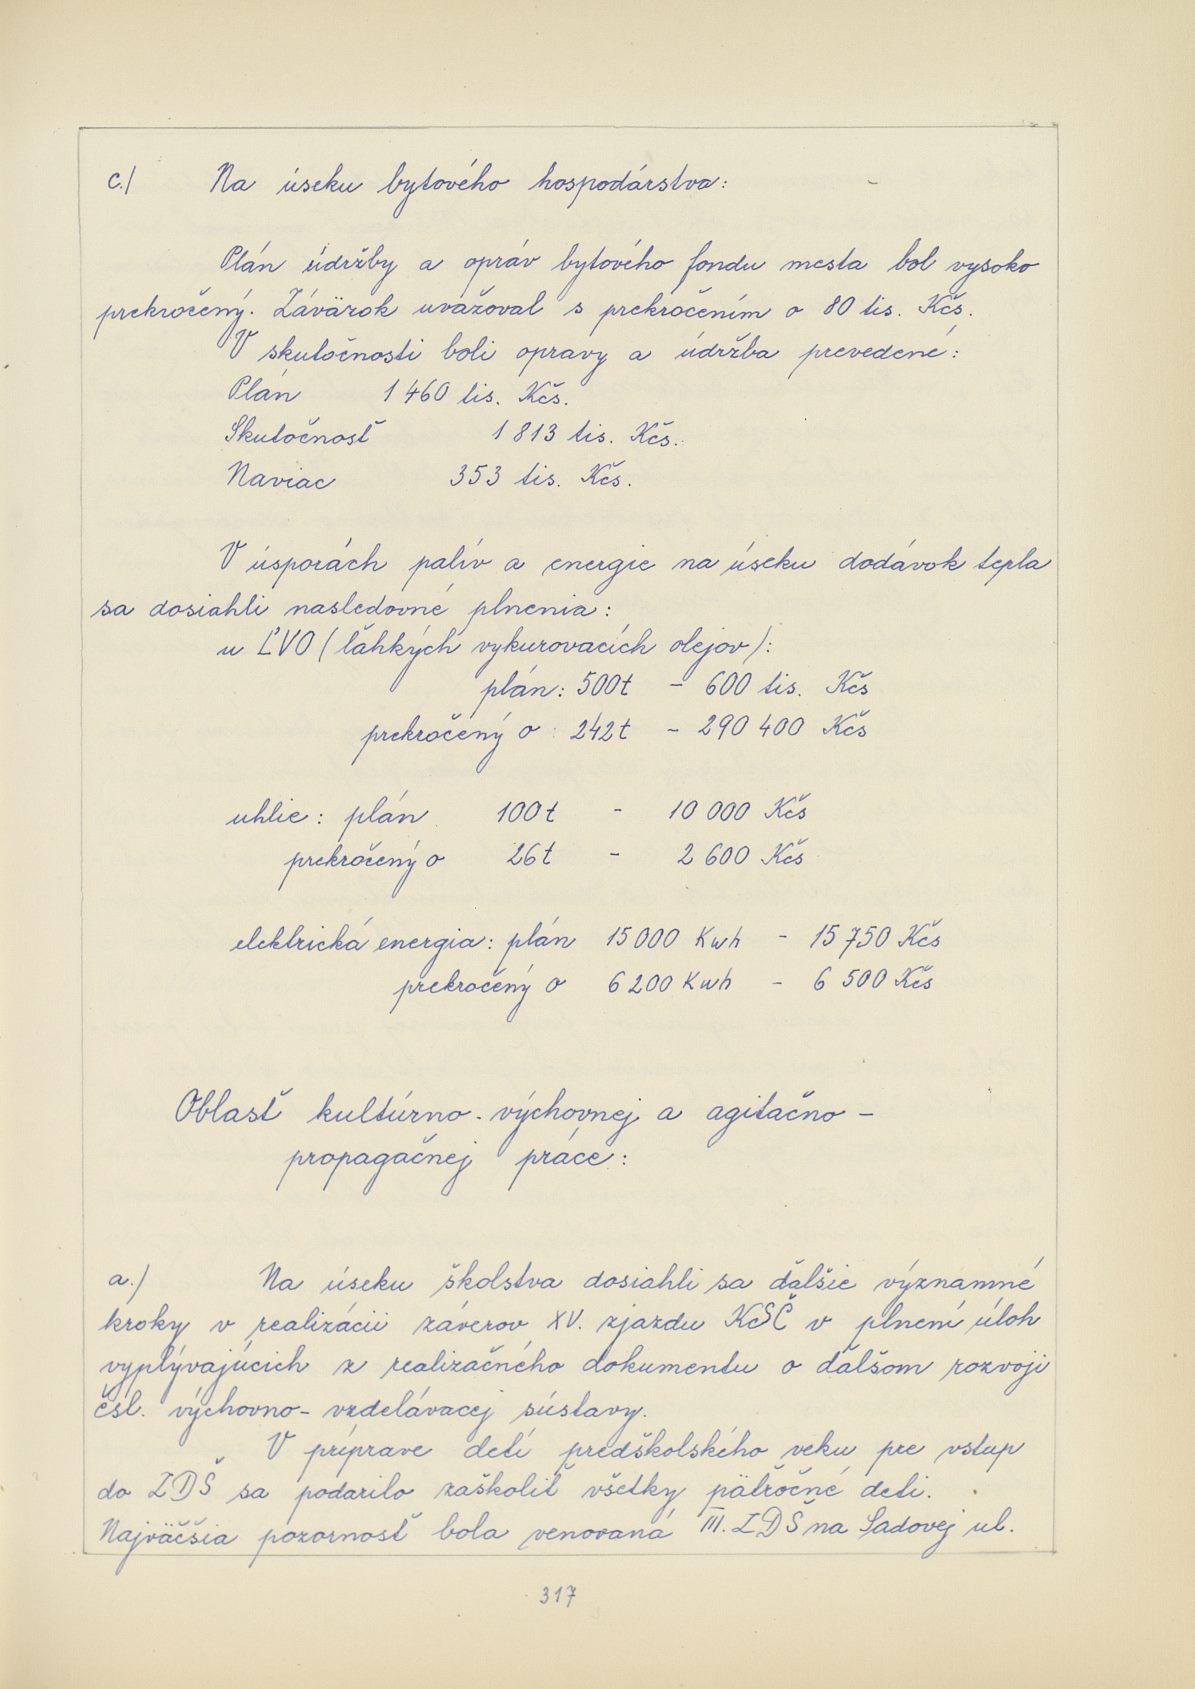 c./ Na úseku bytového hospodárstva:
Plán údržby a opráv bytového fondu mesta bol vysoko
prekročený. Záväzok uvažoval s prekročením o 80 tis. Kčs.
V skutočnosti boli opravy a údržba prevedené:
Plán 1 460 tis. Kčs.
Skutočnosť 1 813 tis. Kčs.
Naviac 353 tis. Kčs.
V úsporách palív a energie na úseku dodávok tepla
sa dosiahli nasledovné plnenia:
u ĽVO (ľahkých vykurovacích olejov):
plán: 500t - 600 tis. Kčs
prekročený o 242t - 290 400 Kčs
uhlie: plán 100t - 10 000 Kčs
prekročený o 26t - 2 600 Kčs
elektrická energia: plán 15 000 Kwh - 15 750 Kčs
prekročený o 6 200 Kwh - 6 500 Kčs
Oblasť kultúrno-výchovnej a agitačno-
propagačnej práce:
a./ Na úseku školstva dosiahli sa ďalšie významné
kroky v realizácii záverov XV. zjazdu KSČ v plnení úloh
vyplývajúcich z realizačného dokumentu o ďalšom rozvoji
čsl. výchovno-vzdelávacej sústavy.
V príprave detí predškolského veku pre vstup
do ZDŠ sa podarilo zaškoliť všetky päťročné deti.
Najväčšia pozornosť bola venovaná III. ZDŠ na Sadovej ul.
317